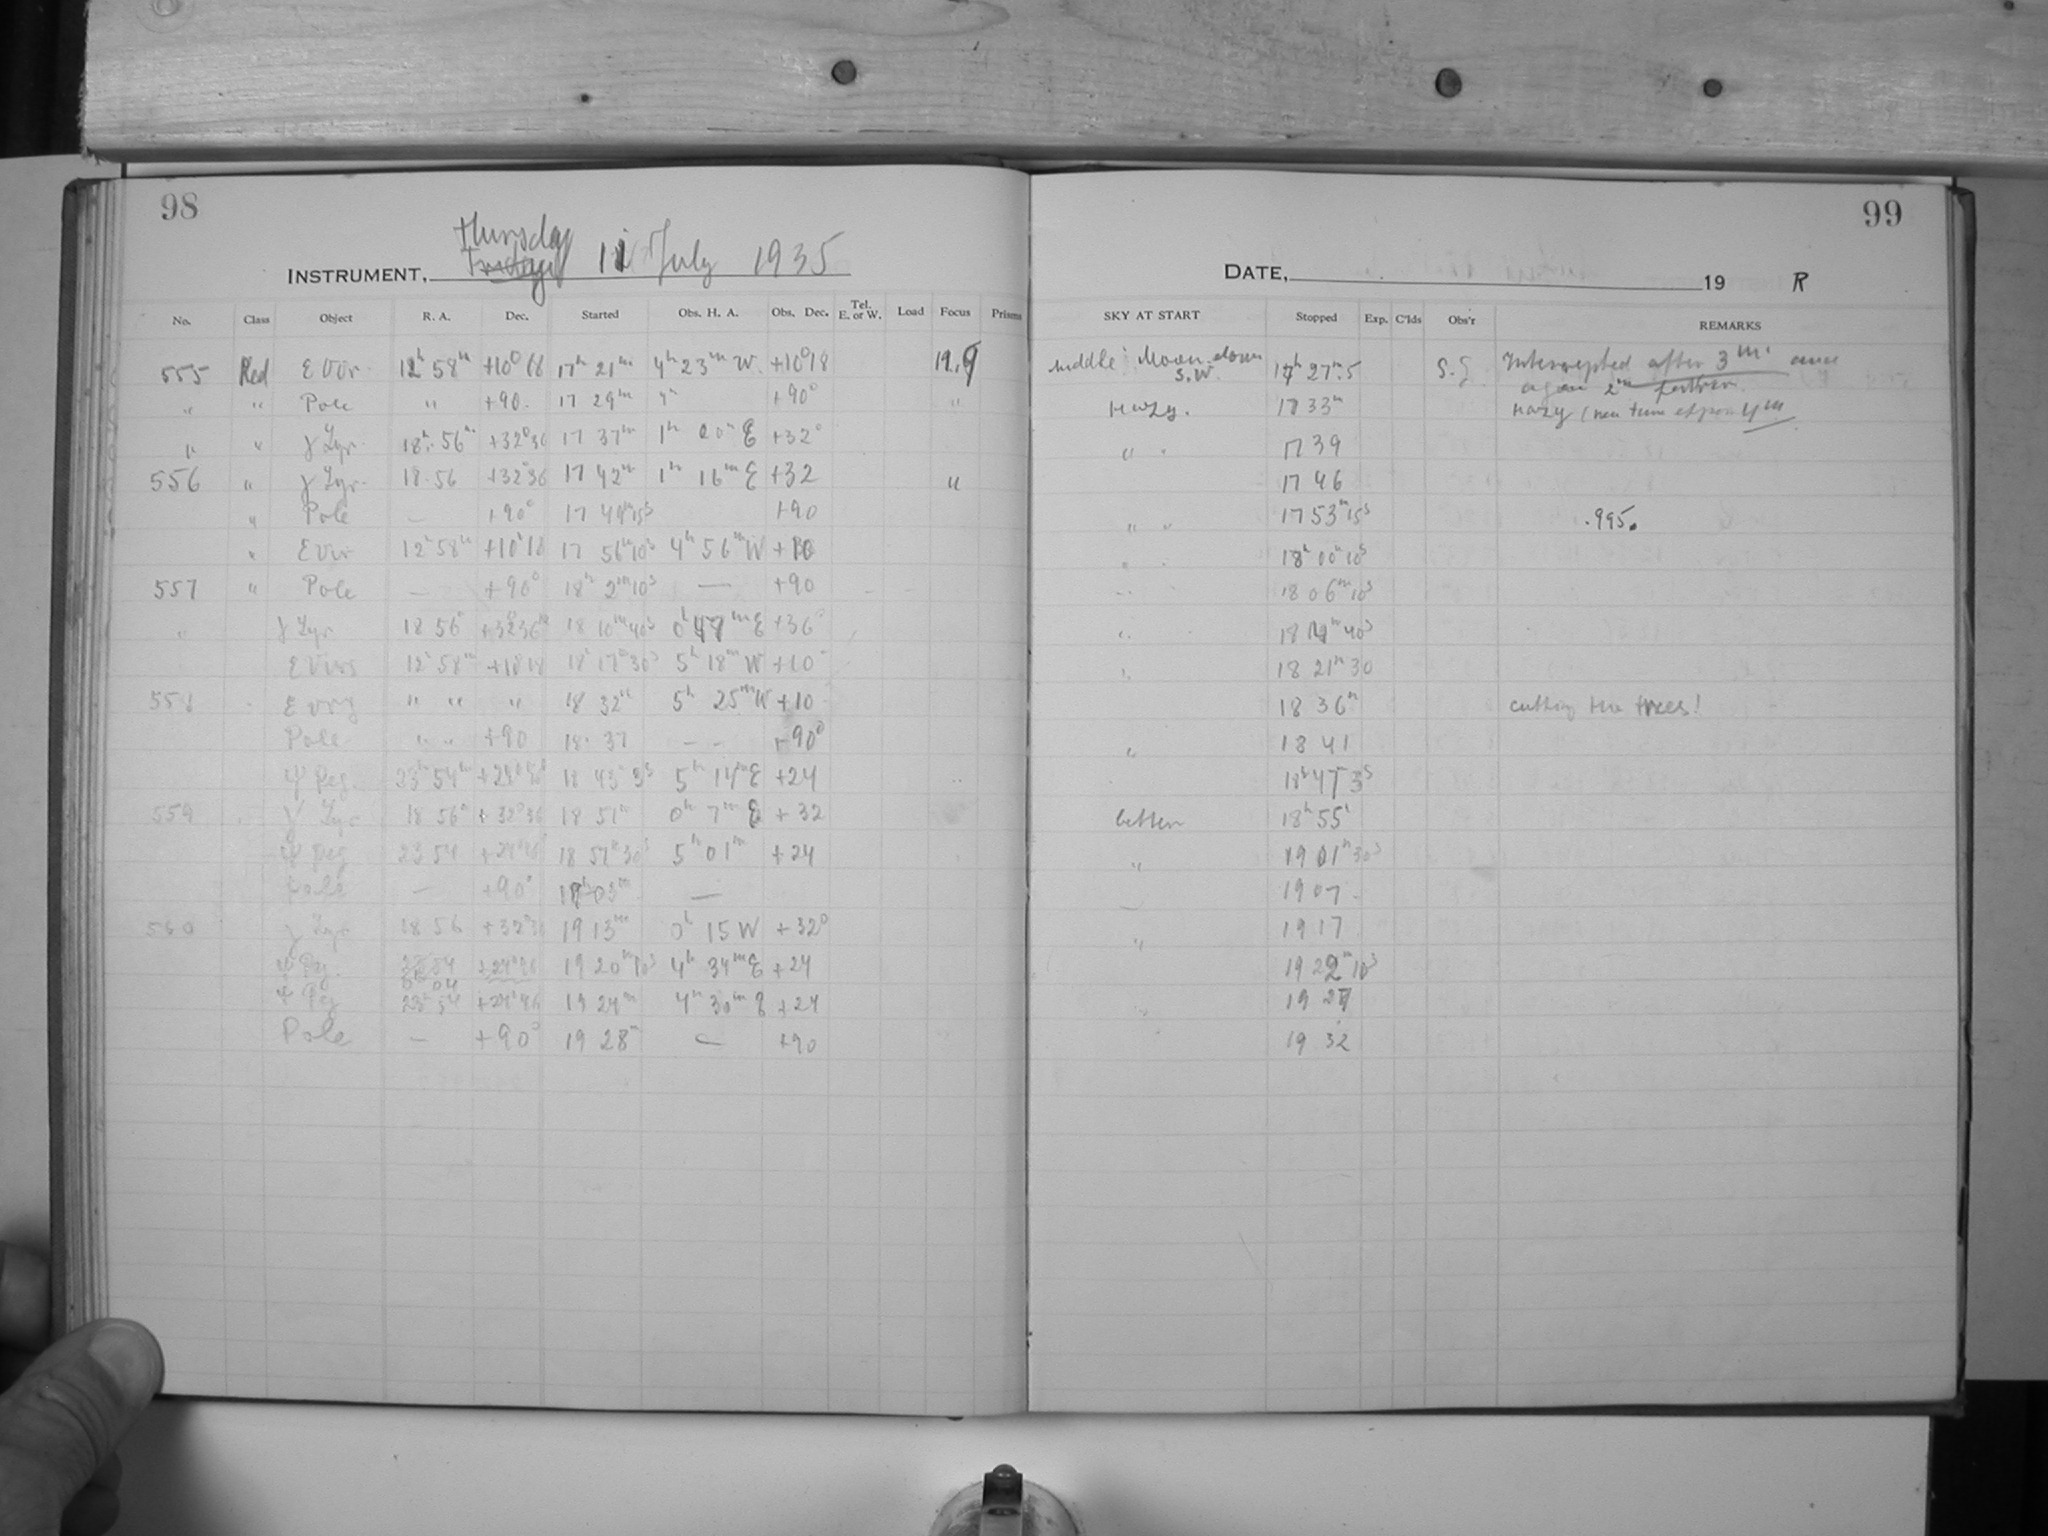 98
99
Thursday
INSTRUMENT, Friday 11 July 1935
DATE, 19 R
No. Class Object R. A. Dec. Started Obs. H. A. Obs. Dec. Tel. E. or W. Load Focus Prisms SKY AT START Stopped Exp. C'lds Obs'r REMARKS
555 Red ε Vir. 12h 58m +10° 18 17h 21m 4h 23m W. +10° 18 11.9 middle Moon down S.W. 17h 27m.5 S.G. Interrupted after 3m. once again 2m further
" " Pole " +90. 17 29m +90° " Hazy. 17 33m Hazy (new time 4m
" " γ Lyr. 18h 56m +32° 36 17 37m 1h 20m E +32° " " 17 39
556 " γ Lyr. 18.56 +32° 36 17 42m 1h 16m E +32 " 17 46
" Pole — +90° 17 49m 15s +90 " " 17 53m 15s .995.
" ε Vir 12h 58m +10° 18 17 56m 10s 4h 56m W +10 " " 18h 00m 10s
557 " Pole — +90° 18h 2m 10s — +90 18 06m 10s
" γ Lyr 18 56m +32° 36 18 10m 40s 0h 47m E +36° " 18 14m 40s
ε Virg 12h 58m +10 18 18h 17m 30s 5h 18m W +10° " 18 21m 30
558 ε Virg " " " 18 32m 5h 25m W +10 18 36m cutting the trees!
Pole " " +90 18. 37 — — +90° " 18 41
ψ Peg. 23h 54m +24° 18 43m 3s 5h 14m E +24 18h 47m 3s
559 γ Lyr 18 56m +32° 36 18 51m 0h 7m E +32 better 18h 55m
ψ Peg 23 54 +24° 46 18 57m 30s 5h 01m +24 " 19 01m 30s
Pole — +90° 19h 03m — 19 07
560 γ Lyr 18 56 +32° 36 19 13m 0h 15 W +32° " 19 17
ψ Peg. 23 54 +24° 46 19 20m 10s 4h 34m E +24 19 22m 10s
ψ Peg 23h 54 +24° 46 19 24m 4h 30m E +24 19 27
Pole — +90° 19 28m — +90 19 32